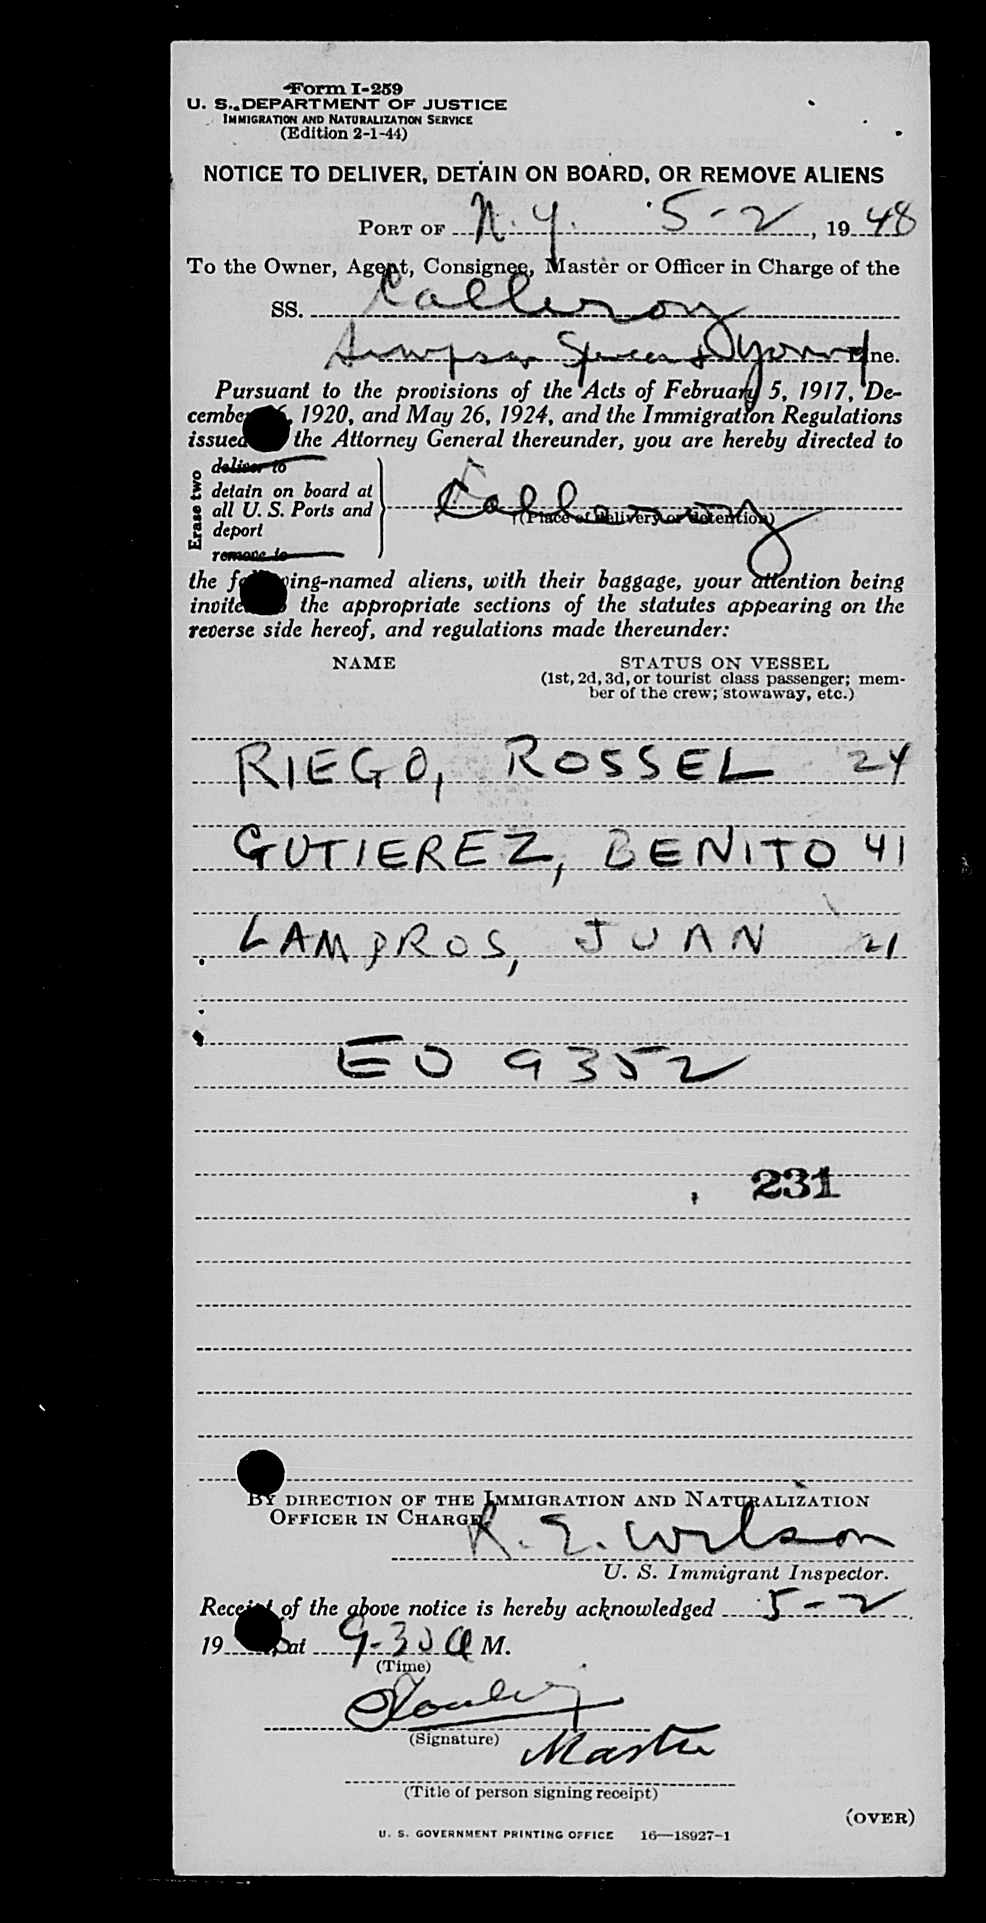 Form I-259
U. S. DEPARTMENT OF JUSTICE
IMMIGRATION AND NATURALIZATION SERVICE
(Edition 2-1-44)
NOTICE TO DELIVER, DETAIN ON BOARD, OR REMOVE ALIENS
PORT OF N.Y. 5-2, 1948
To the Owner, Agent, Consignee, Master or Officer in Charge of the
SS. Calleroy
Simpson Spence & Young Line.
Pursuant to the provisions of the Acts of February 5, 1917, De-
cember , 1920, and May 26, 1924, and the Immigration Regulations
issued the Attorney General thereunder, you are hereby directed to
Erase two
deliver to
detain on board at
all U. S. Ports and
deport
remove to
Calleroy
(Place of delivery or detention)
the following-named aliens, with their baggage, your attention being
invited the appropriate sections of the statutes appearing on the
reverse side hereof, and regulations made thereunder:
NAME STATUS ON VESSEL
(1st, 2d, 3d, or tourist class passenger; mem-
ber of the crew; stowaway, etc.)
RIEGO, ROSSEL 24
GUTIEREZ, BENITO 41
LAMPROS, JUAN 21
EO 9352
231
BY DIRECTION OF THE IMMIGRATION AND NATURALIZATION
OFFICER IN CHARGE.
R. E. Wilson
U. S. Immigrant Inspector.
Receipt of the above notice is hereby acknowledged 5-2
19 , at 9-30 A M.
(Time)
(Signature)
Master
(Title of person signing receipt)
(OVER)
U. S. GOVERNMENT PRINTING OFFICE 16—18927-1